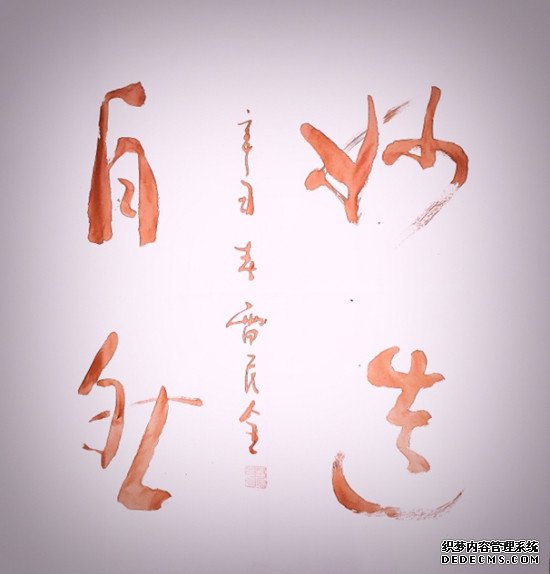 妙造
自然
辛丑春 民全
织梦内容管理系统
DEDECMS.COM